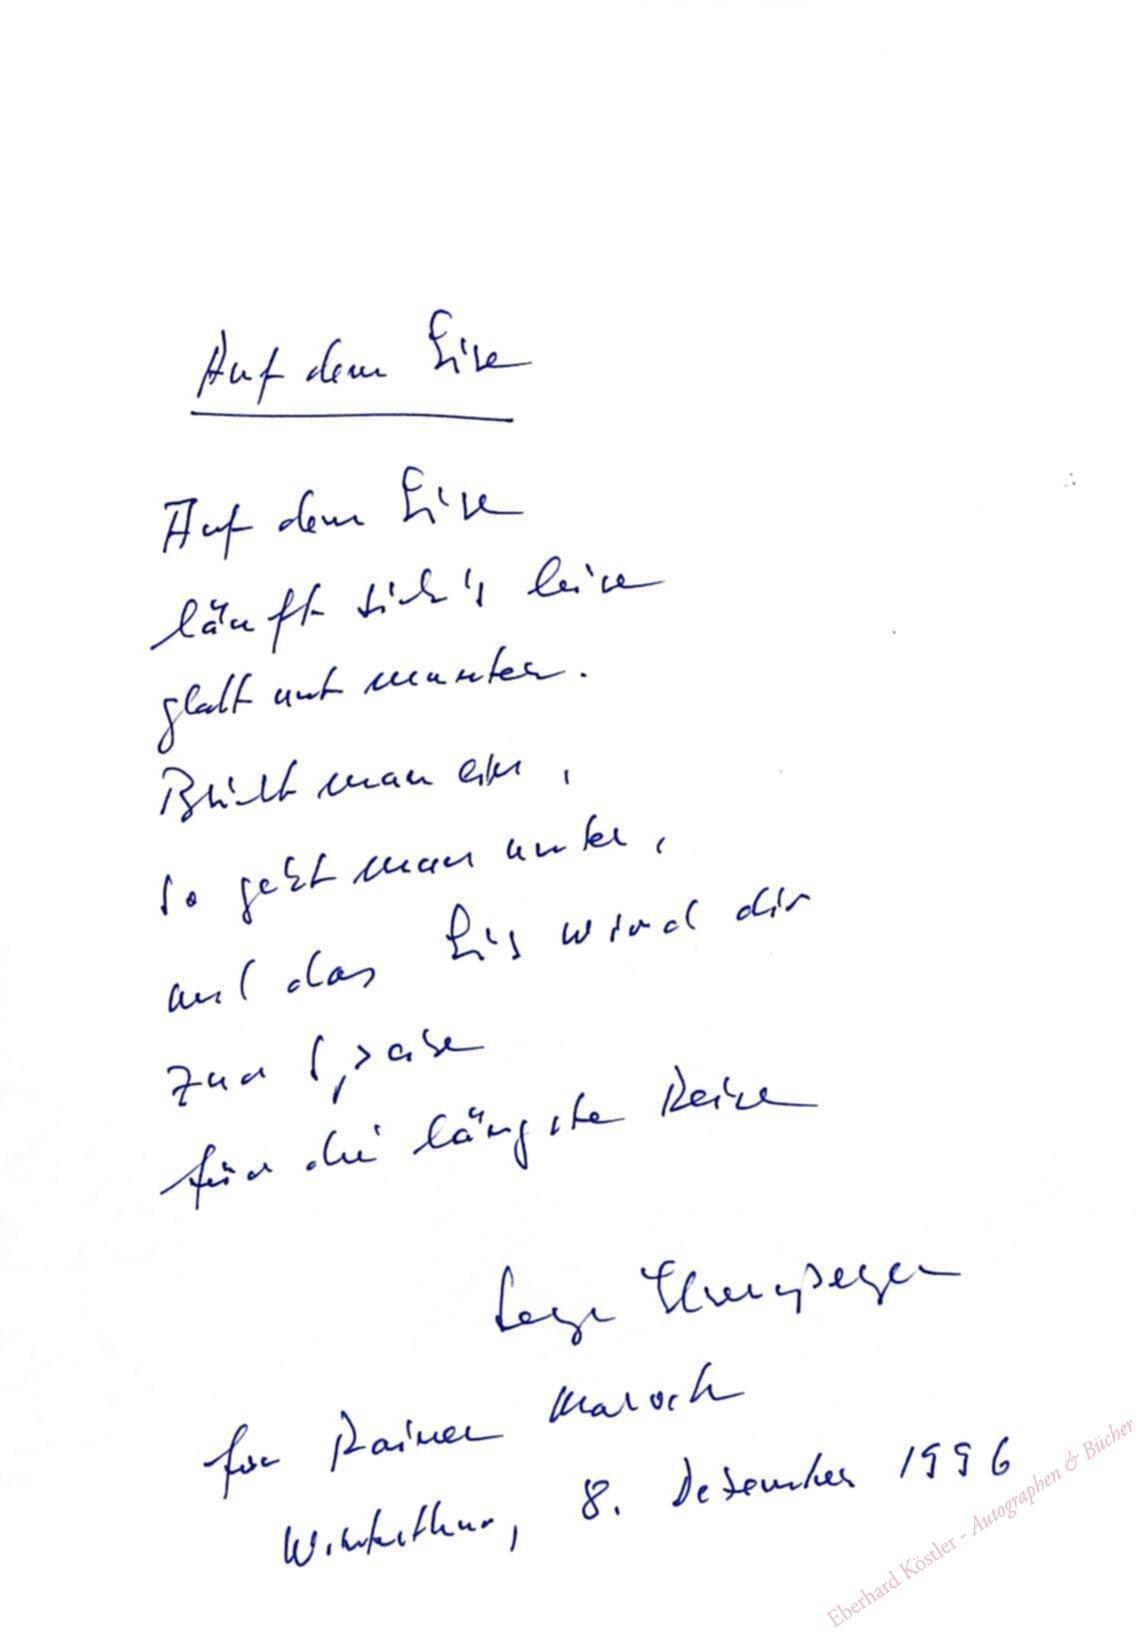 Auf dem Eise
Auf dem Eise
läuft sich's leise
glatt und munter.
Bricht man ein,
so geht man unter,
und das Eis wird dir
zur Speise
für die längste Reise
für Rainer Maroch
Winterthur, 8. Dezember 1996
Eberhard Köstler - Autographen & Bücher